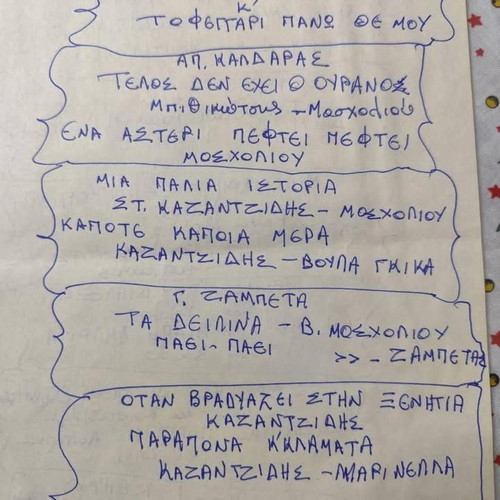 Κ'
ΤΟ ΦΕΓΓΑΡΙ ΠΑΝΩ ΘΕ ΜΟΥ
ΑΠ. ΚΑΛΔΑΡΑΣ
ΤΕΛΟΣ ΔΕΝ ΕΧΕΙ Ο ΟΥΡΑΝΟΣ
Μπιθικώτσης - Μοσχολιού
ΕΝΑ ΑΣΤΕΡΙ ΠΕΦΤΕΙ ΠΕΦΤΕΙ
ΜΟΣΧΟΛΙΟΥ
ΜΙΑ ΠΑΛΙΑ ΙΣΤΟΡΙΑ
ΣΤ. ΚΑΖΑΝΤΖΙΔΗΣ - ΜΟΣΧΟΛΙΟΥ
ΚΑΠΟΤΕ ΚΑΠΟΙΑ ΜΕΡΑ
ΚΑΖΑΝΤΖΙΔΗΣ - ΒΟΥΛΑ ΓΚΙΚΑ
Γ. ΖΑΜΠΕΤΑ
ΤΑ ΔΕΙΛΙΝΑ - Β. ΜΟΣΧΟΛΙΟΥ
ΠΑΕΙ - ΠΑΕΙ >> - ΖΑΜΠΕΤΑΣ
ΟΤΑΝ ΒΡΑΔΥΑΖΕΙ ΣΤΗΝ ΞΕΝΗΤΙΑ
ΚΑΖΑΝΤΖΙΔΗΣ
ΠΑΡΑΠΟΝΑ Κ'ΚΛΑΜΑΤΑ
ΚΑΖΑΝΤΖΙΔΗΣ - ΜΑΡΙΝΕΛΛΑ